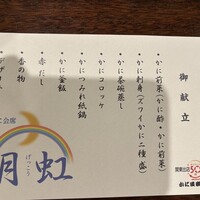 御献立
・かに前菜(かに酢・かに前菜)
・かに刺身(ズワイかに二種盛)
・かに茶碗蒸し
・かにコロッケ
・かにつみれ紙鍋
・かに釜飯
・赤だし
・香の物
・デザート
会席
月虹
げっこう